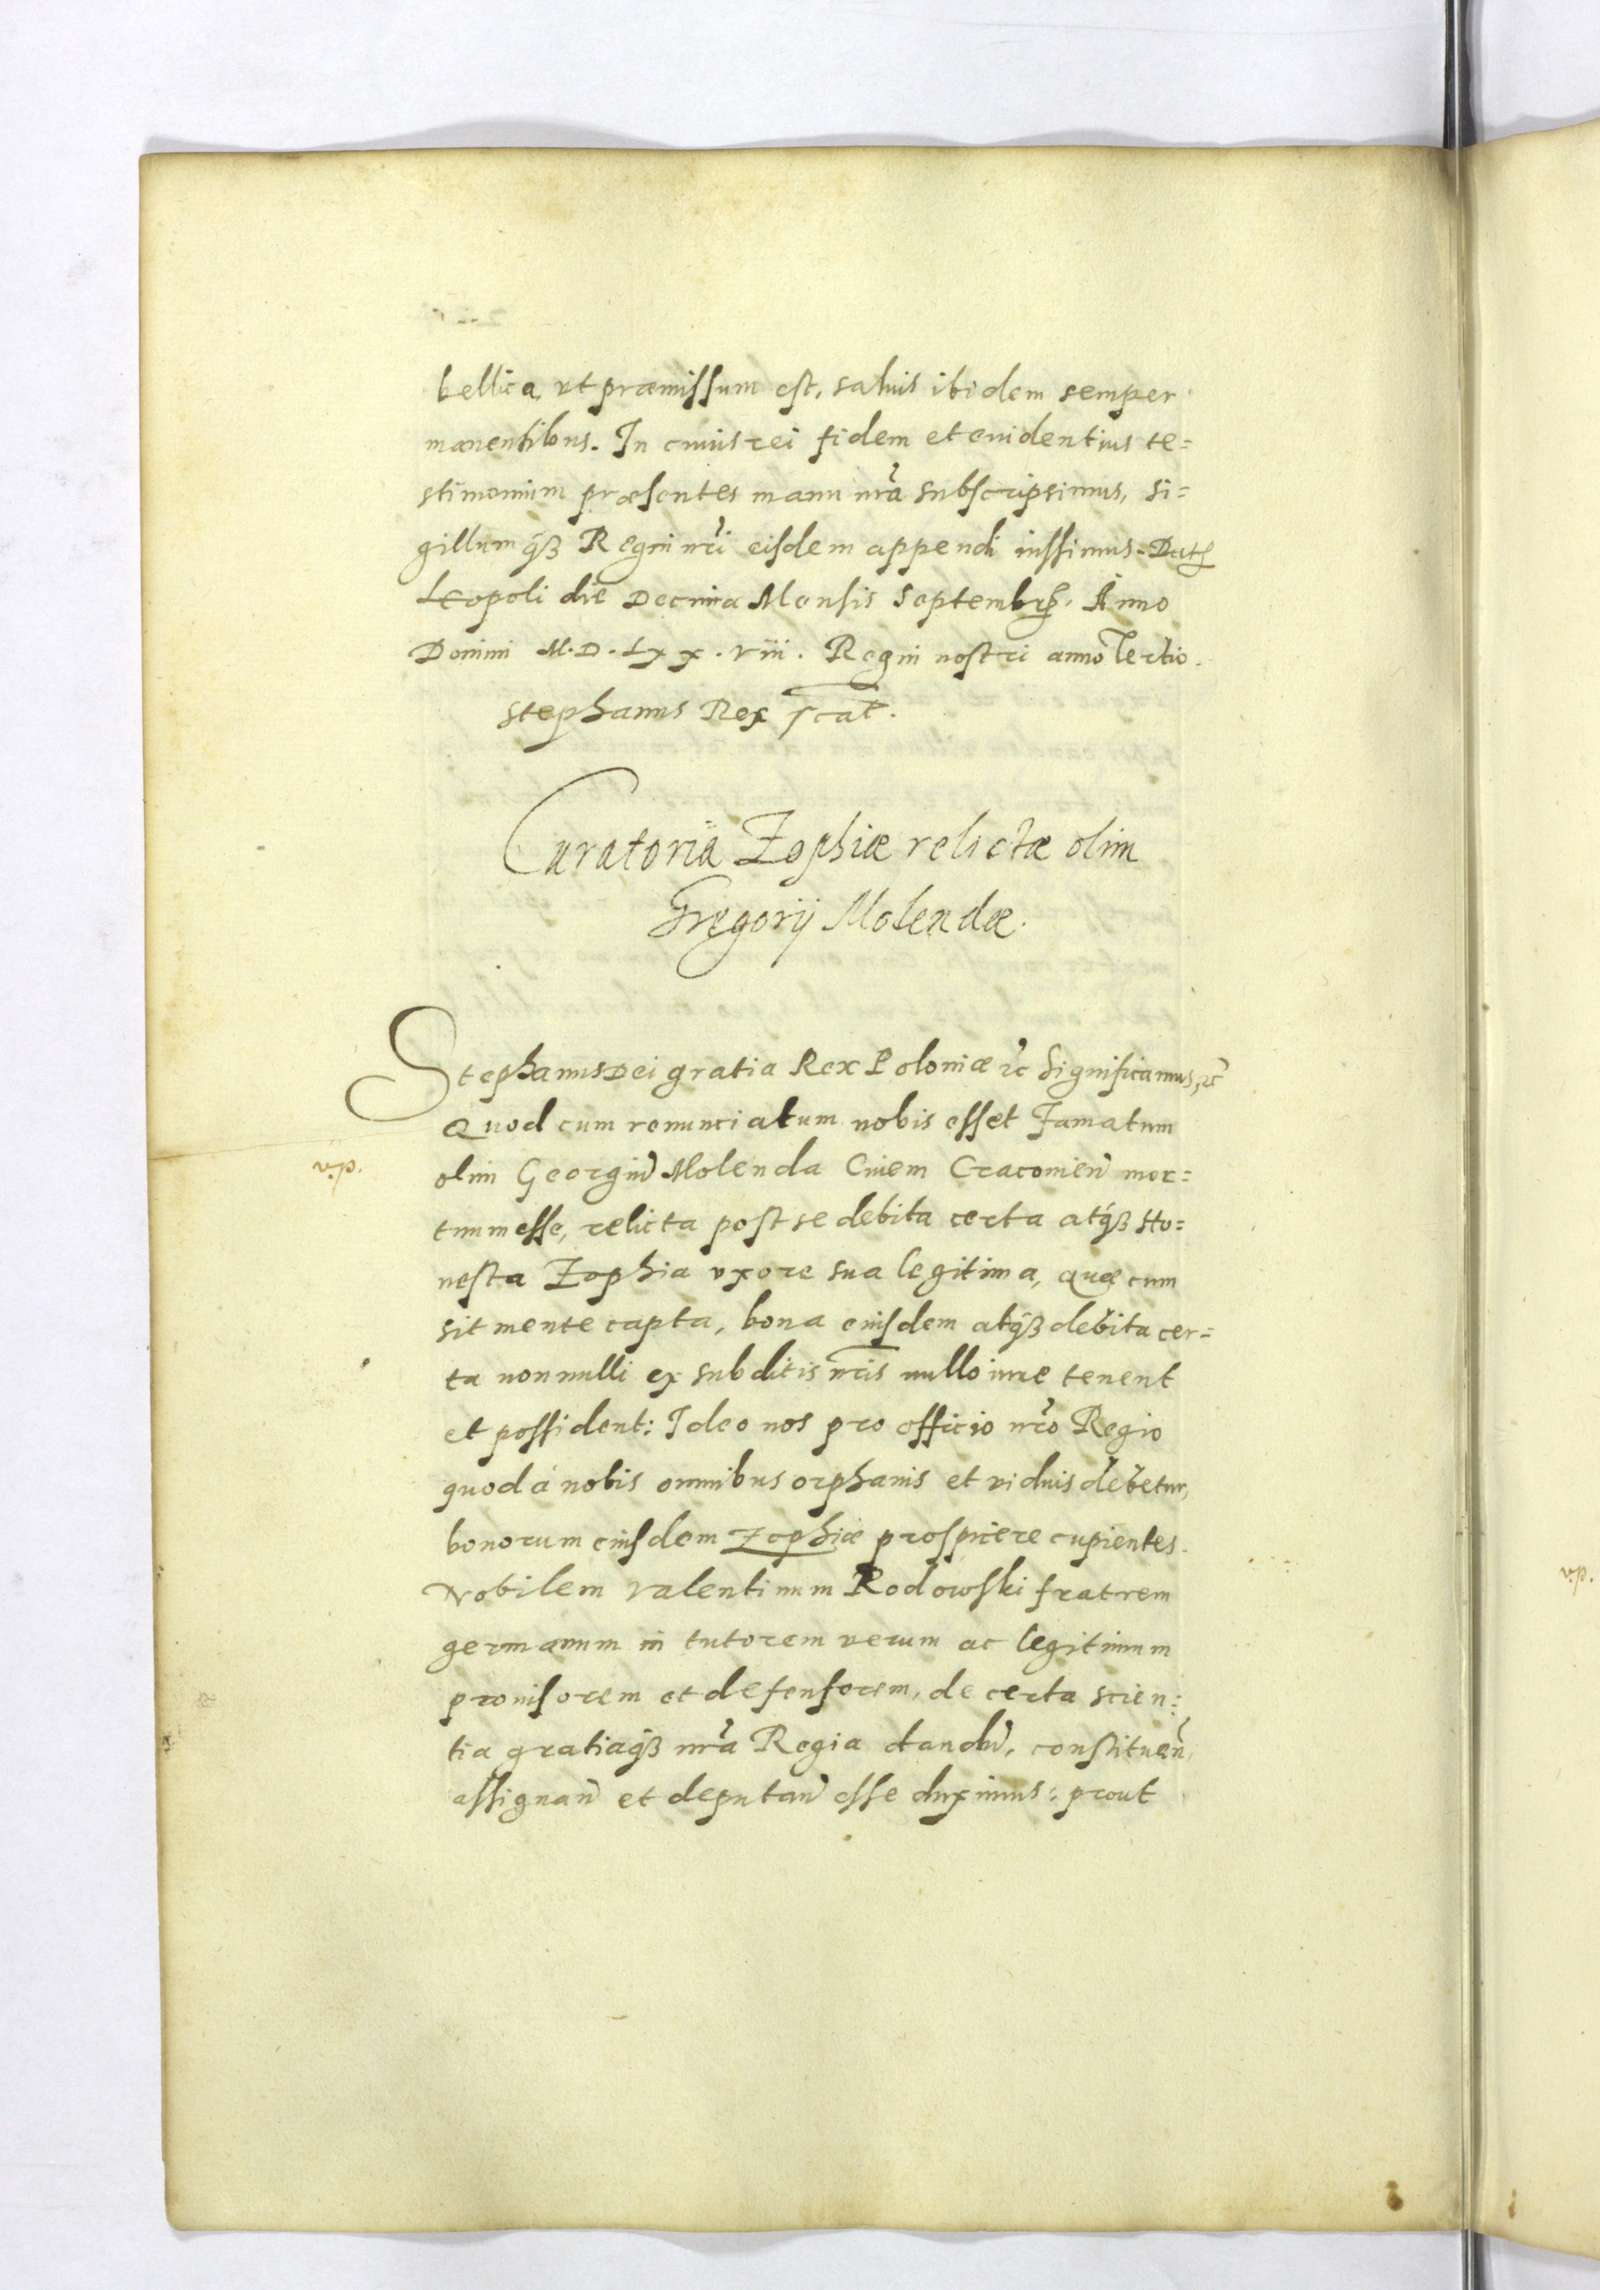 bellica, vt præmissum est, saluis ibidem semper
manentibus. In cuius rei fidem et euidentius te=
stimonium præsentes manu nrã subscripsimus, si=
gillumq̃ȝ Regni nrĩ eisdem appendi iussimus. Dat̃
Leopoli die Decima Mensis Septembr̃. Anno
Domini M.D.LXX.viii. Regni nostri anno Tertio.
Stephanus Rex scat̃.
Curatoria Zophiæ relictæ olim
Gregorij Molendæ.
Stephanus Dei gratia Rex Poloniæ ꝛc̃ Significamus, ꝛc̃
Quod cum renunciatum nobis esset Famatum
olim Georgiũ Molenda Ciuem Cracouieñ mor=
tuum esse, relicta post se debita certa atq̃ȝ Ho=
nesta Zophia vxore sua legitima, quæ cum
sit mente capta, bona eiusdem atq̃ȝ debita cer=
ta nonnulli ex subditis nrĩs nullo iure tenent
et possident: Ideo nos pro officio nrõ Regio
quod à nobis omnibus orphanis et viduis debetur,
bonorum eiusdem Zophiæ prospicere cupientes.
Nobilem Valentinum Rodowski fratrem
germanum in tutorem verum ac legitimum
prouisorem et defensorem, de certa scien=
tia gratiaq̃ȝ nrã Regia dandũ, constitueñ,
assignañ et deputañ esse duximus: prout